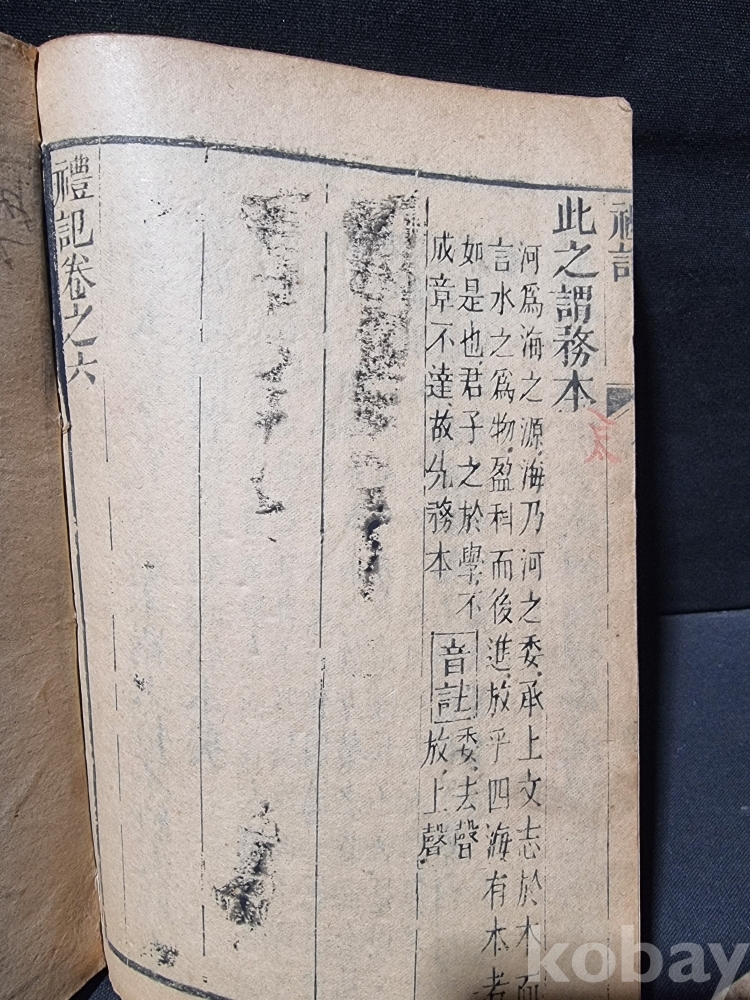 禮記
此之謂務本
河爲海之源,海乃河之委,承上文志於本而
言水之爲物,盈科而後進,放乎四海有本者
如是也,君子之於學,不
成章不達,故先務本
音註 委,去聲
放,上聲
禮記卷之六
kobay